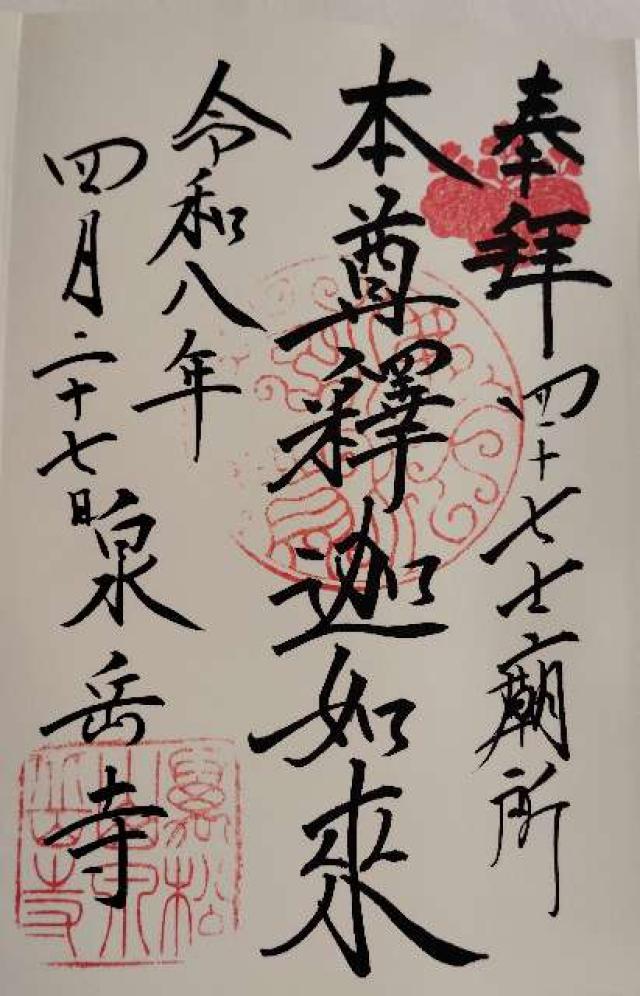 奉拜 四十七士廟所
本尊釋迦如來
令和八年
四月二十七日 泉岳寺
萬松山泉岳寺